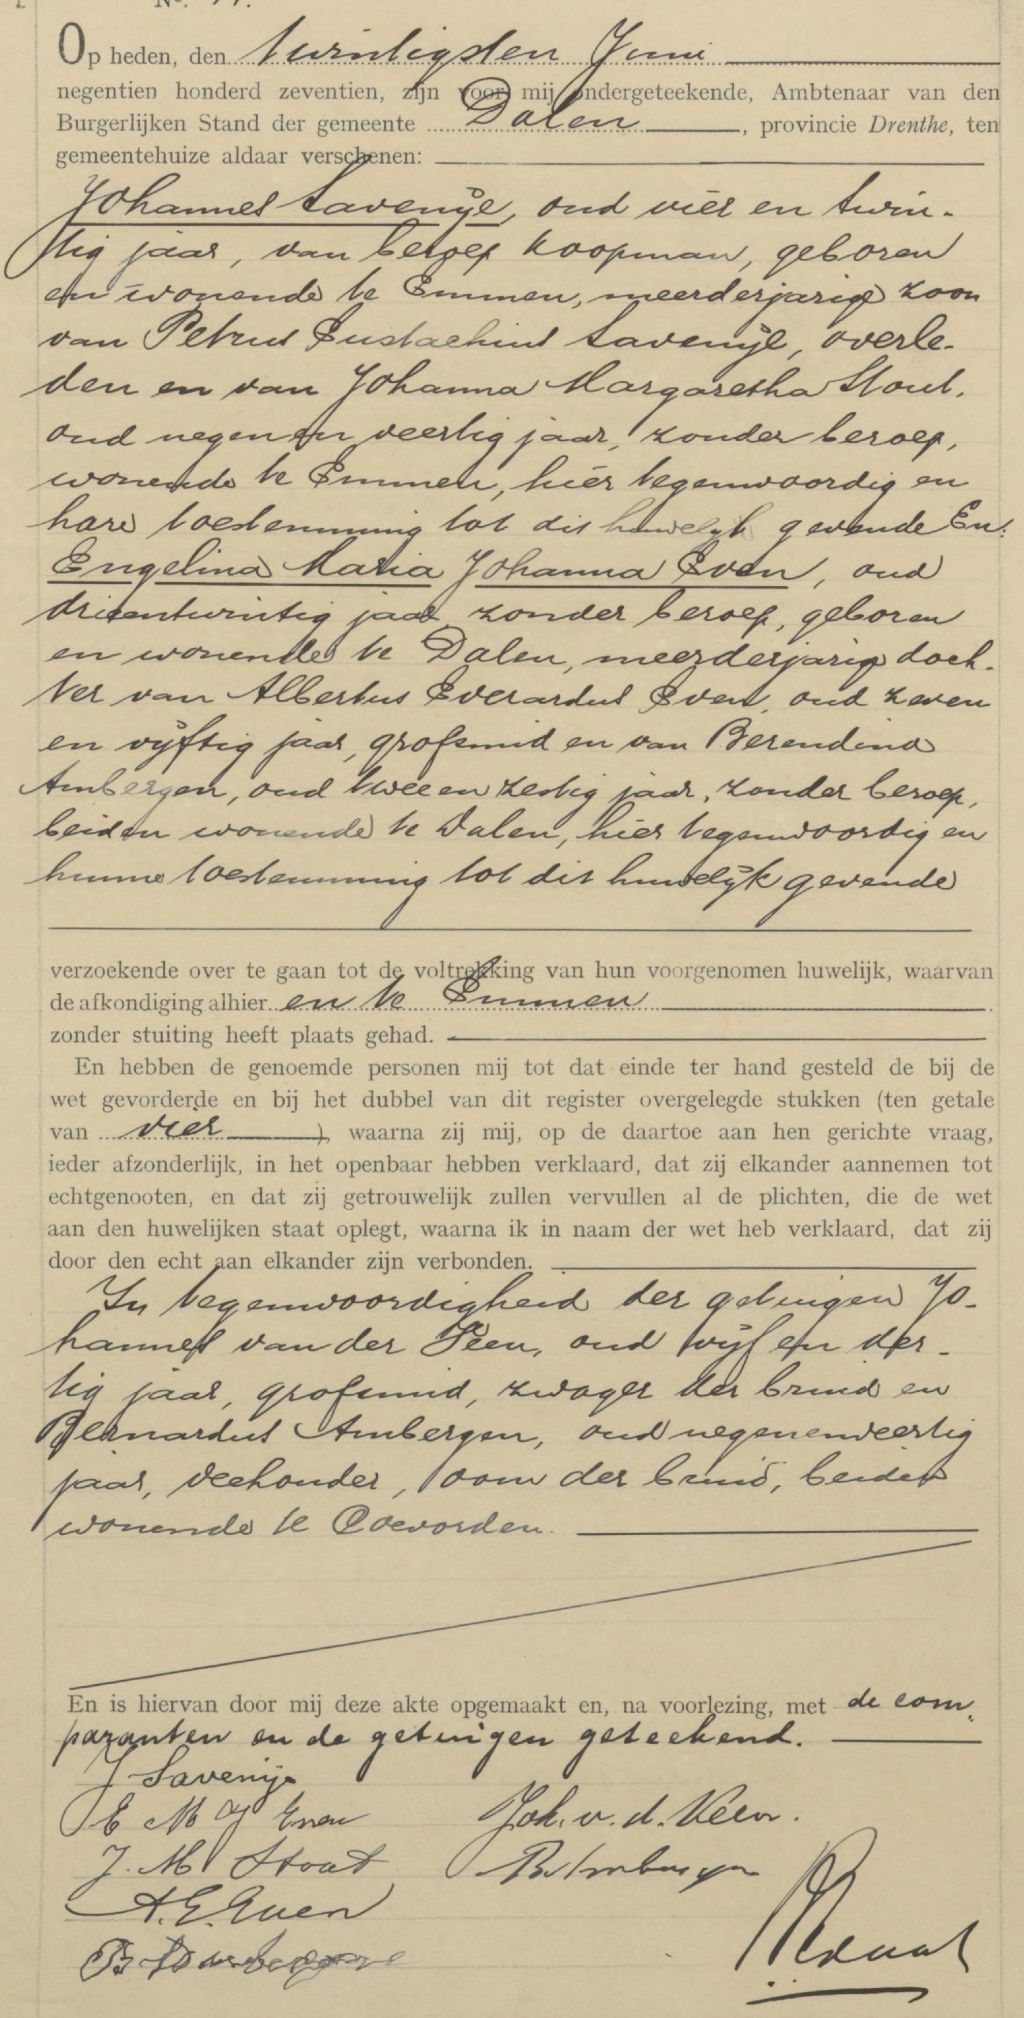 Op heden, den twintigsten Juni
negentien honderd zeventien, zijn voor mij ondergeteekende, Ambtenaar van den
Burgerlijken Stand der gemeente Dalen, provincie Drenthe, ten
gemeentehuize aldaar verschenen:
Johannes Savenije, oud vier en twin-
tig jaar, van beroep koopman, geboren
en wonende te Emmen, meerderjarige zoon
van Petrus Eustachius Savenije, overle-
den en van Johanna Margaretha Stout,
oud negen en veertig jaar, zonder beroep,
wonende te Emmen, hier tegenwoordig en
hare toestemming tot dit huwelijk gevende En:
Engelina Maria Johanna Even, oud
drieentwintig jaar, zonder beroep, geboren
en wonende te Dalen, meerderjarige doch-
ter van Albertus Everardus Even, oud zeven
en vijftig jaar, grofsmid en van Berendina
Ambergen, oud twee en zestig jaar, zonder beroep,
beiden wonende te Dalen, hier tegenwoordig en
hunne toestemming tot dit huwelijk gevende
verzoekende over te gaan tot de voltrekking van hun voorgenomen huwelijk, waarvan
de afkondiging alhier en te Emmen
zonder stuiting heeft plaats gehad.
En hebben de genoemde personen mij tot dat einde ter hand gesteld de bij de
wet gevorderde en bij het dubbel van dit register overgelegde stukken (ten getale
van vier), waarna zij mij, op de daartoe aan hen gerichte vraag,
ieder afzonderlijk, in het openbaar hebben verklaard, dat zij elkander aannemen tot
echtgenooten, en dat zij getrouwelijk zullen vervullen al de plichten, die de wet
aan den huwelijken staat oplegt, waarna ik in naam der wet heb verklaard, dat zij
door den echt aan elkander zijn verbonden.
In tegenwoordigheid der getuigen Jo-
hannes van der Veen, oud vijf en der-
tig jaar, grofsmid, zwager der bruid en
Bernardus Ambergen, oud negenenveertig
jaar, veehouder, oom der bruid, beiden
wonende te Coevorden.
En is hiervan door mij deze akte opgemaakt en, na voorlezing, met de com-
paranten en de getuigen geteekend.
J Savenije
E M J Even
Joh. v. d. Veen.
J. M. Stout
B. Ambergen
A. E. Even
B Ambergen